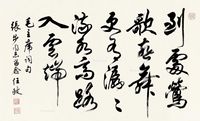 到處鶯
歌燕舞
更有潺々
流水高路
入雲端
毛主席詞句
任政